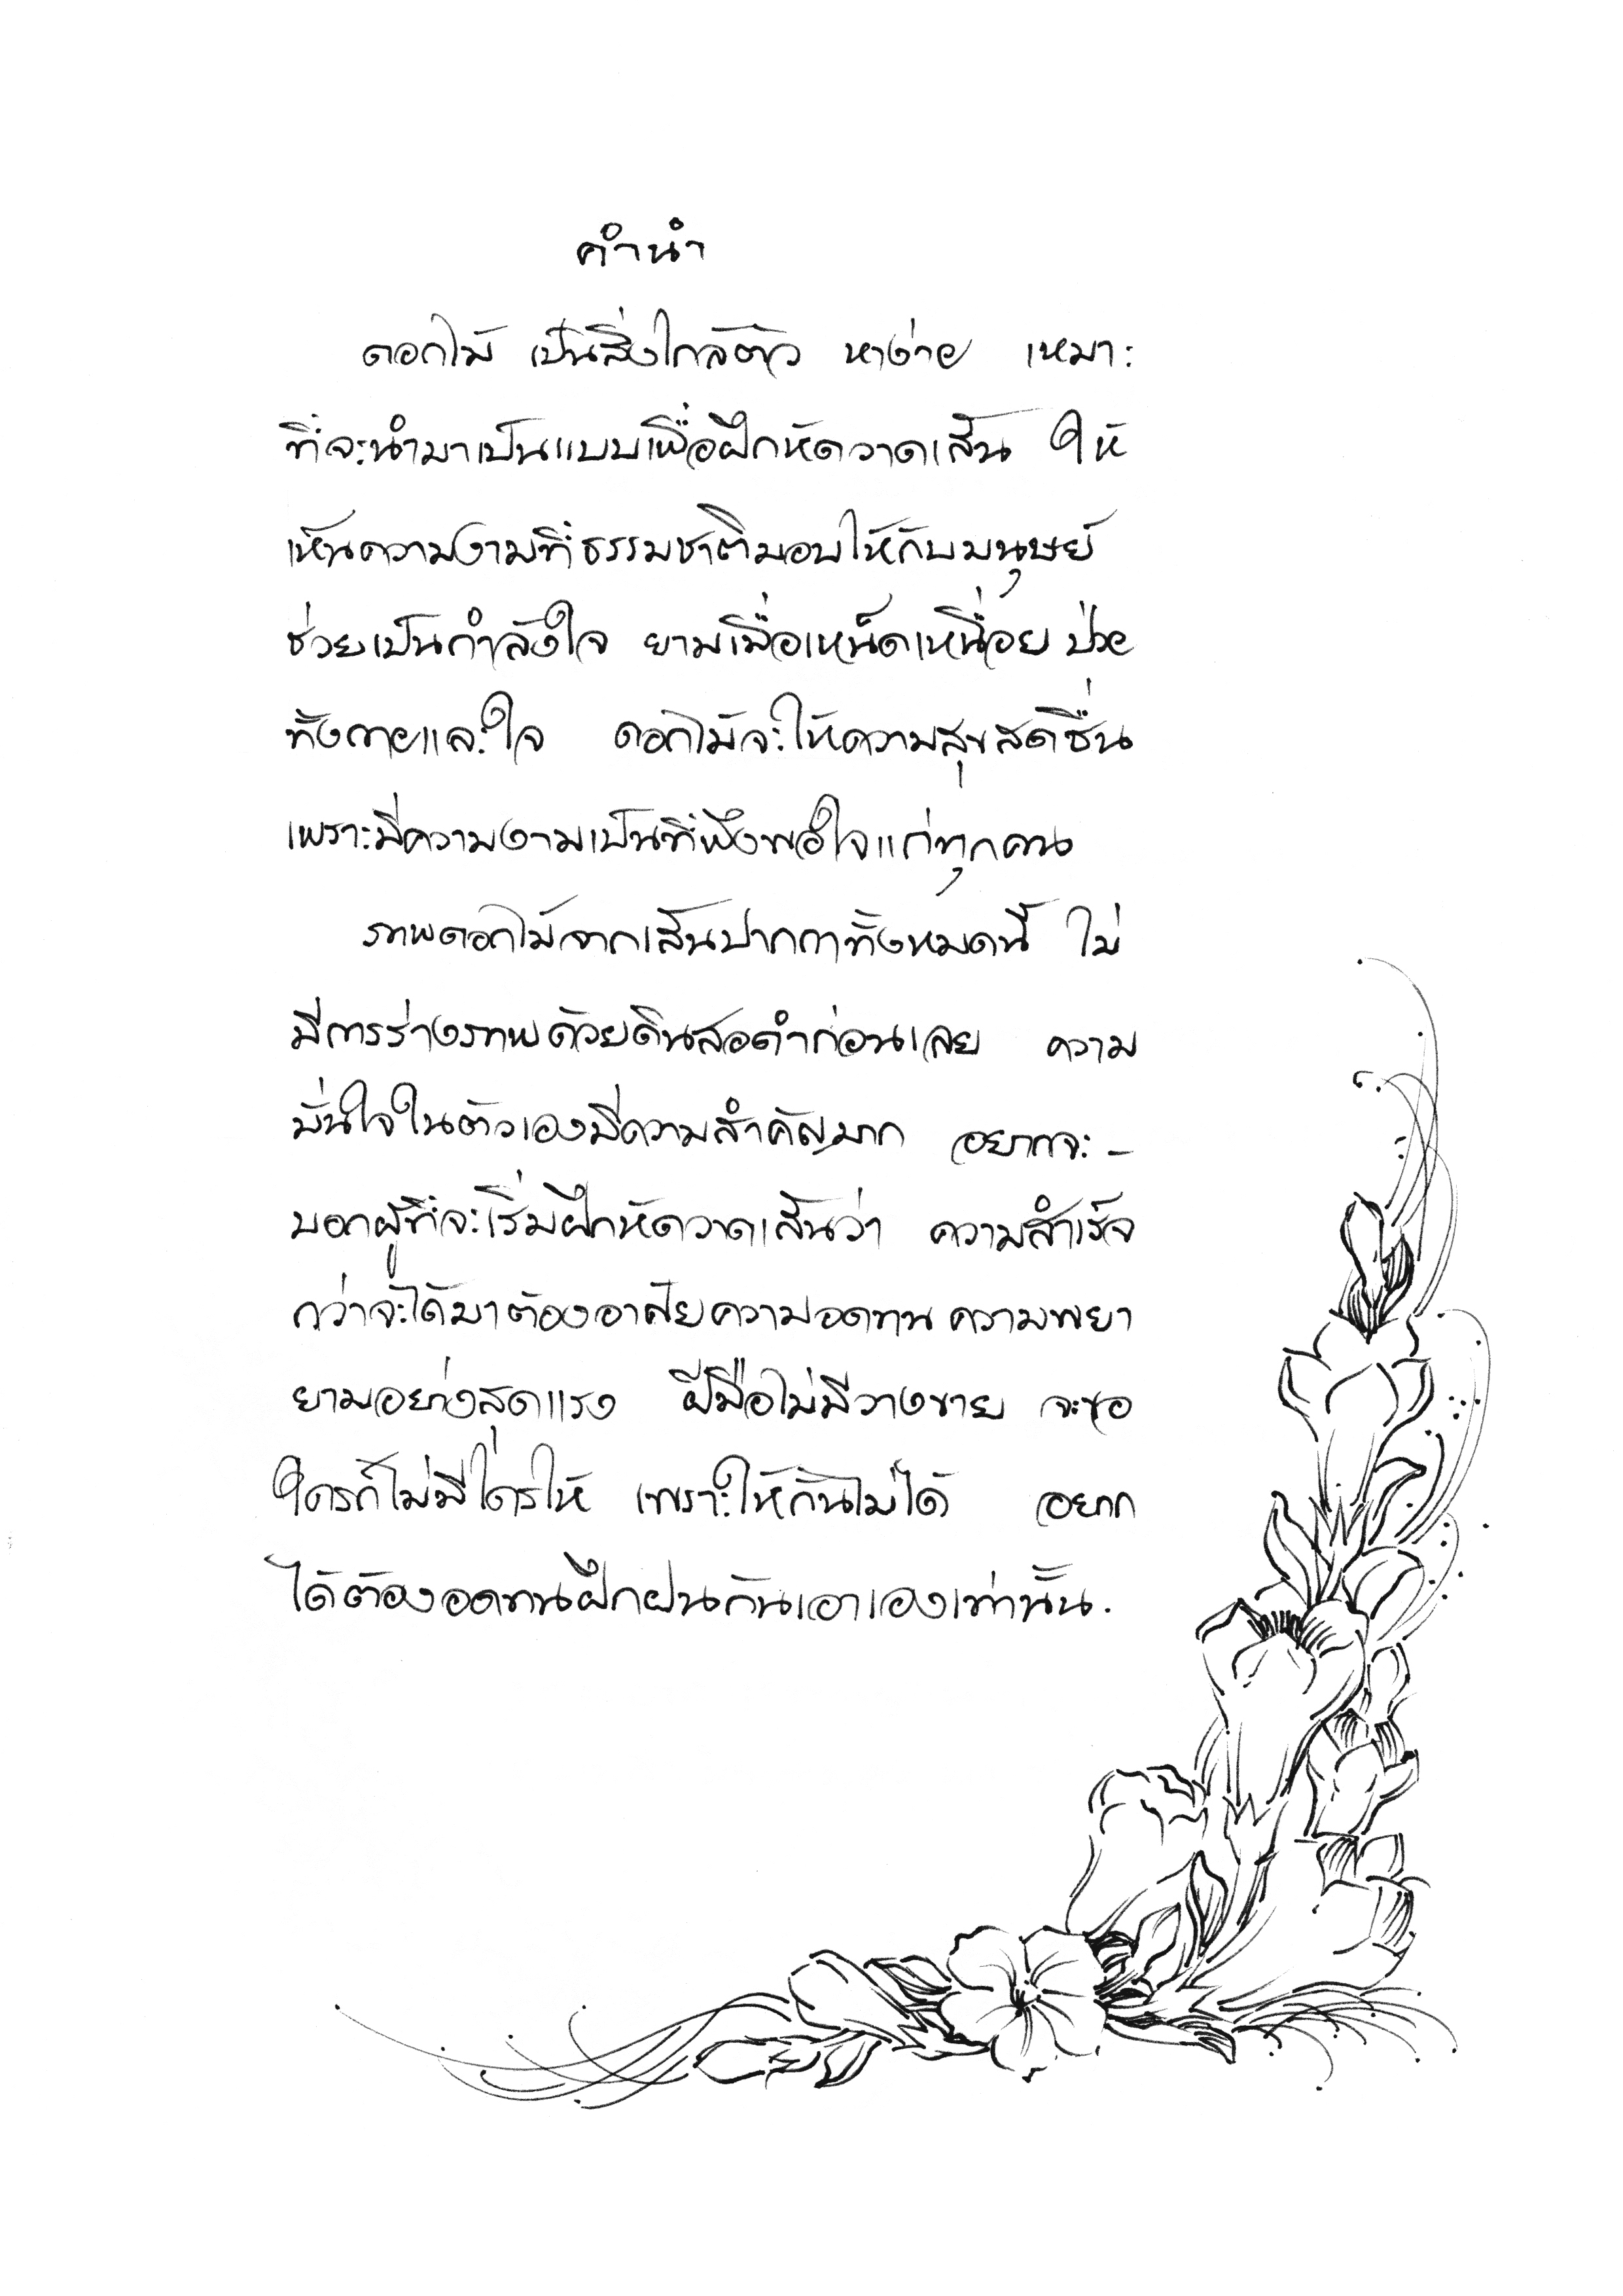 คำนำ
ดอกไม้ เป็นสิ่งใกล้ตัว หาง่าย เหมาะ
ที่จะนำมาเป็นแบบเพื่อฝึกหัดวาดเส้น ให้
เห็นความงามที่ธรรมชาติมอบให้กับมนุษย์
ช่วยเป็นกำลังใจ ยามเมื่อเหน็ดเหนื่อย ป่วย
ทั้งกายและใจ ดอกไม้จะให้ความสุขสดชื่น
เพราะมีความงามเป็นที่พึงพอใจแก่ทุกคน
ภาพดอกไม้จากเส้นปากกาทั้งหมดนี้ ไม่
มีการร่างภาพด้วยดินสอดำก่อนเลย ความ
มั่นใจในตัวเองมีความสำคัญมาก อยากจะ -
บอกผู้ที่จะเริ่มฝึกหัดวาดเส้นว่า ความสำเร็จ
กว่าจะได้มาต้องอาศัยความอดทน ความพยา
ยามอย่างสุดแรง ฝีมือไม่มีวางขาย จะขอ
ใครก็ไม่มีใครให้ เพราะให้กันไม่ได้ อยาก
ได้ต้องอดทนฝึกฝนกันเอาเองเท่านั้น.